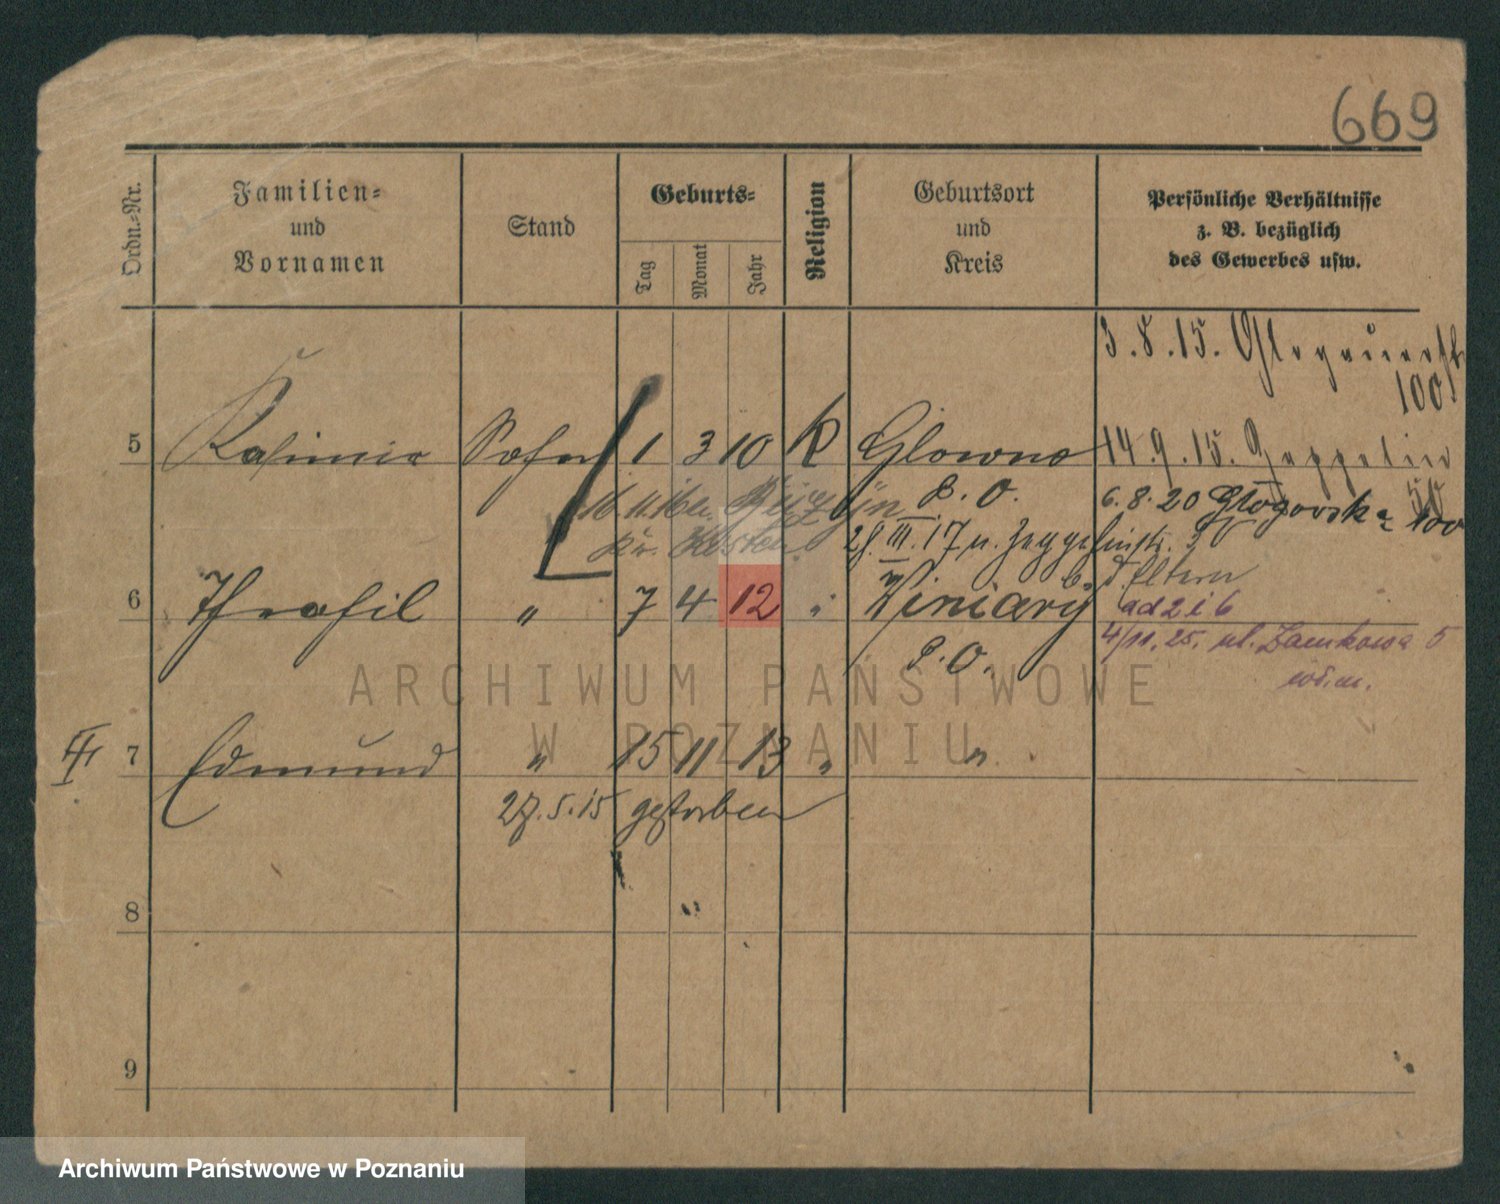 669
Ordn.-Nr.
Familien-
und
Vornamen
Stand
Geburts-
Tag
Monat
Jahr
Religion
Geburtsort
und
Kreis
Persönliche Verhältnisse
z. B. bezüglich
des Gewerbes usw.
3.8.15. Glogauerstr
100
5 Kasimir Sohn 1 3 10 K Glowno 14.9.15. Zeppelin
P. O. 50
6.8.20 Glogowska 100
Kr. Kosten
28.III.17
6 Theofil " 7 4 12 " Winiary
P. O.
b. d Eltern
ad 2 i 6
4/11.25. ul. Zamkowa 5
ARCHIWUM PAŃSTWOWE
W POZNANIU
III 7 Edmund " 15 11 13 " "
27.5.15 gestorben
8
9
Archiwum Państwowe w Poznaniu